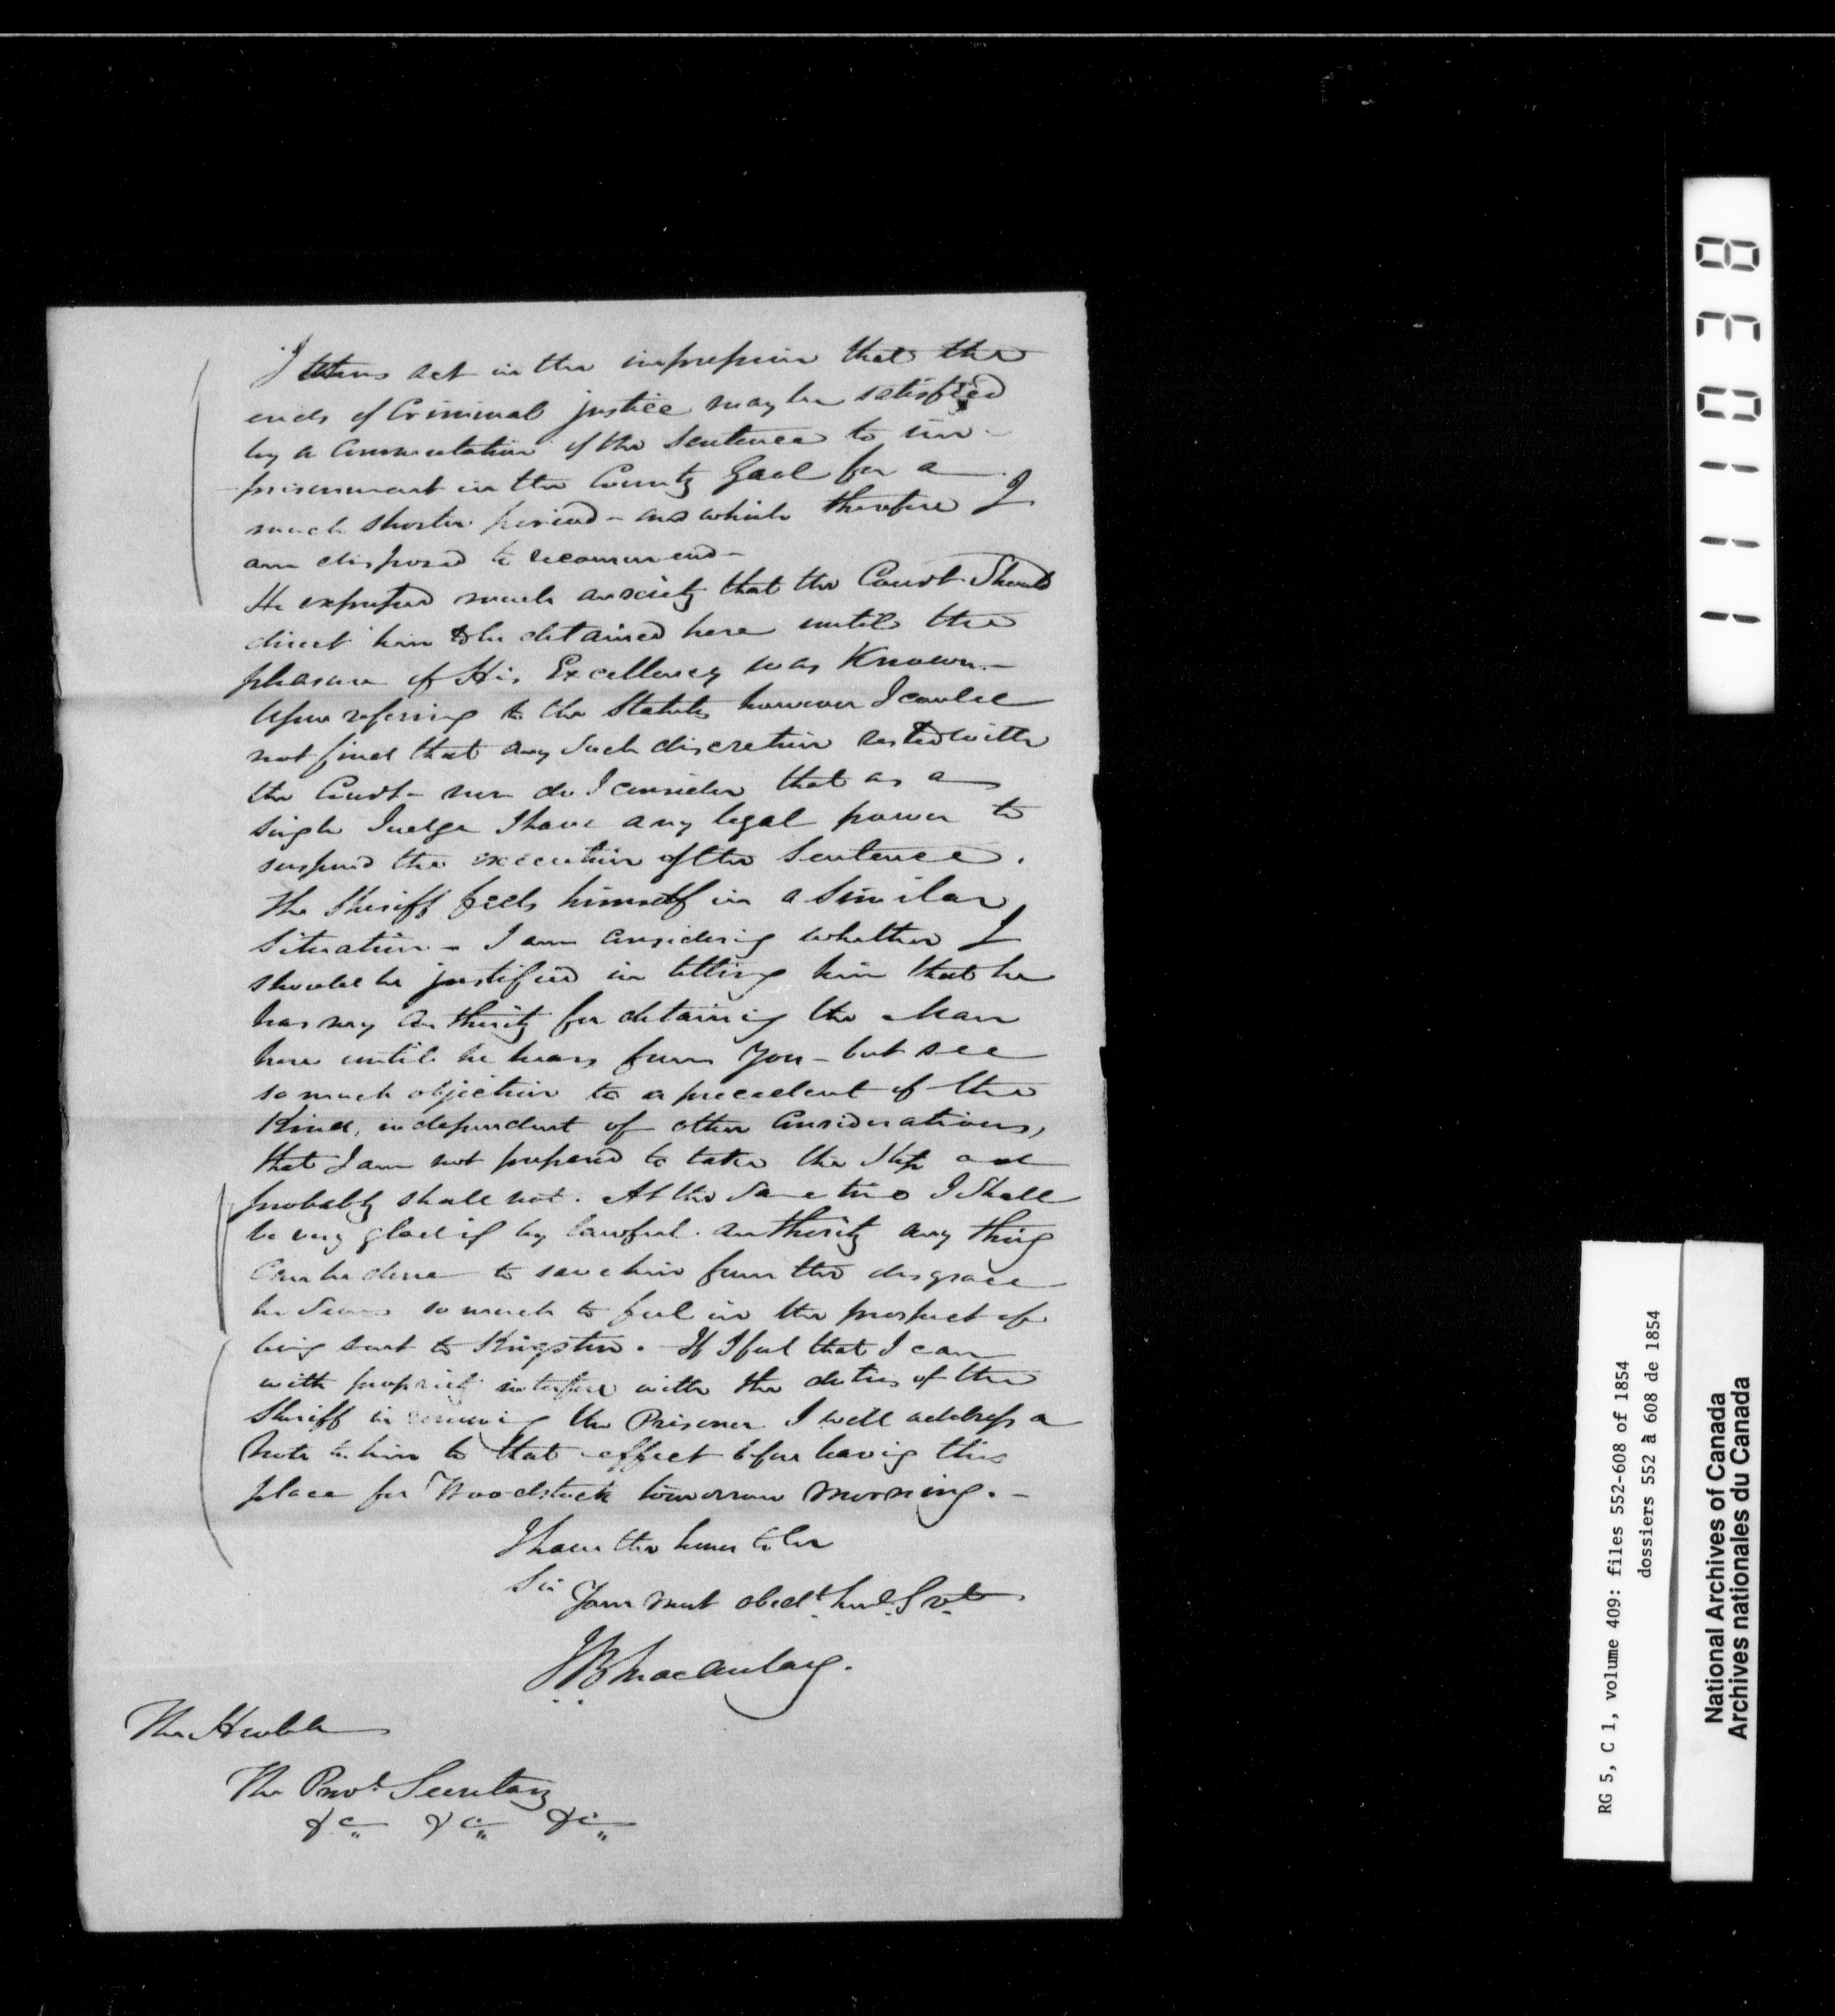 I thus act in the impression that the
ends of Criminal justice may be satisfied
by a Commutation of the Sentence to im-
prisonment in the County Gaol for a
much shorter period - and which therefore I
am disposed to recommend -
He expressed much anxiety that the Court Should
direct him to be detained here until the
pleasure of His Excellency was Known. -
Upon referring to the Statute however I could
not find that any Such discretion rested with
the Court - nor do I consider that as a
single Judge I have any legal power to
suspend the execution of the Sentence.
The Sheriff feels himself in a Similar
Situation - I am Considering whether I
should be justified in telling him that he
has my authority for detaining the Man
here until he hears from You - but see
so much objection to a precedent of the
Kind, independent of other Considerations,
that I am not prepared to take the Step and
probably shall not. At the Same time I Shall
be very glad if by lawful authority any thing
Can be done to save him from the disgrace
he Seems so much to feel in the prospect of
being sent to Kingston. If I feel that I can
with propriety interfere with the duties of the
Sheriff in removing the Prisoner I will address a
Note to him to that effect before leaving this
place for Woodstock tomorrow Morning. -
I have the honor to be
Sir
Your most obedt. huml. Svt.
J B Macaulay.
The Honble
The Provl. Secretary
&c &c &c
111038
RG 5, C 1, volume 409: files 552-608 of 1854
dossiers 552 à 608 de 1854
National Archives of Canada
Archives nationales du Canada